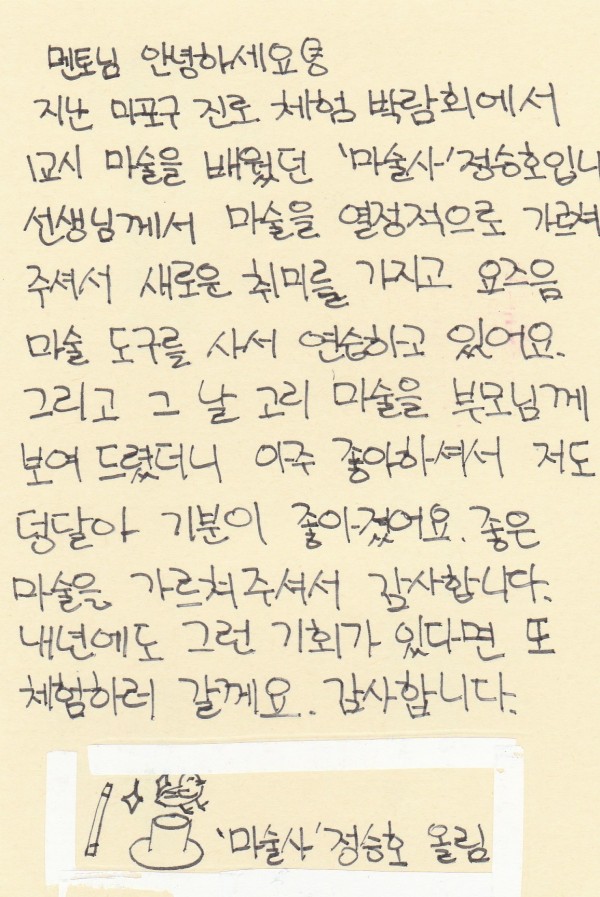 멘토님 안녕하세요
지난 마포구 진로 체험 박람회에서
1교시 마술을 배웠던 '마술사' 정승호입니
선생님께서 마술을 열정적으로 가르쳐
주셔서 새로운 취미를 가지고 요즈음
마술 도구를 사서 연습하고 있어요.
그리고 그 날 고리 마술을 부모님께
보여 드렸더니 아주 좋아하셔서 저도
덩달아 기분이 좋아졌어요. 좋은
마술을 가르쳐주셔서 감사합니다.
내년에도 그런 기회가 있다면 또
체험하러 갈께요. 감사합니다.
'마술사' 정승호 올림